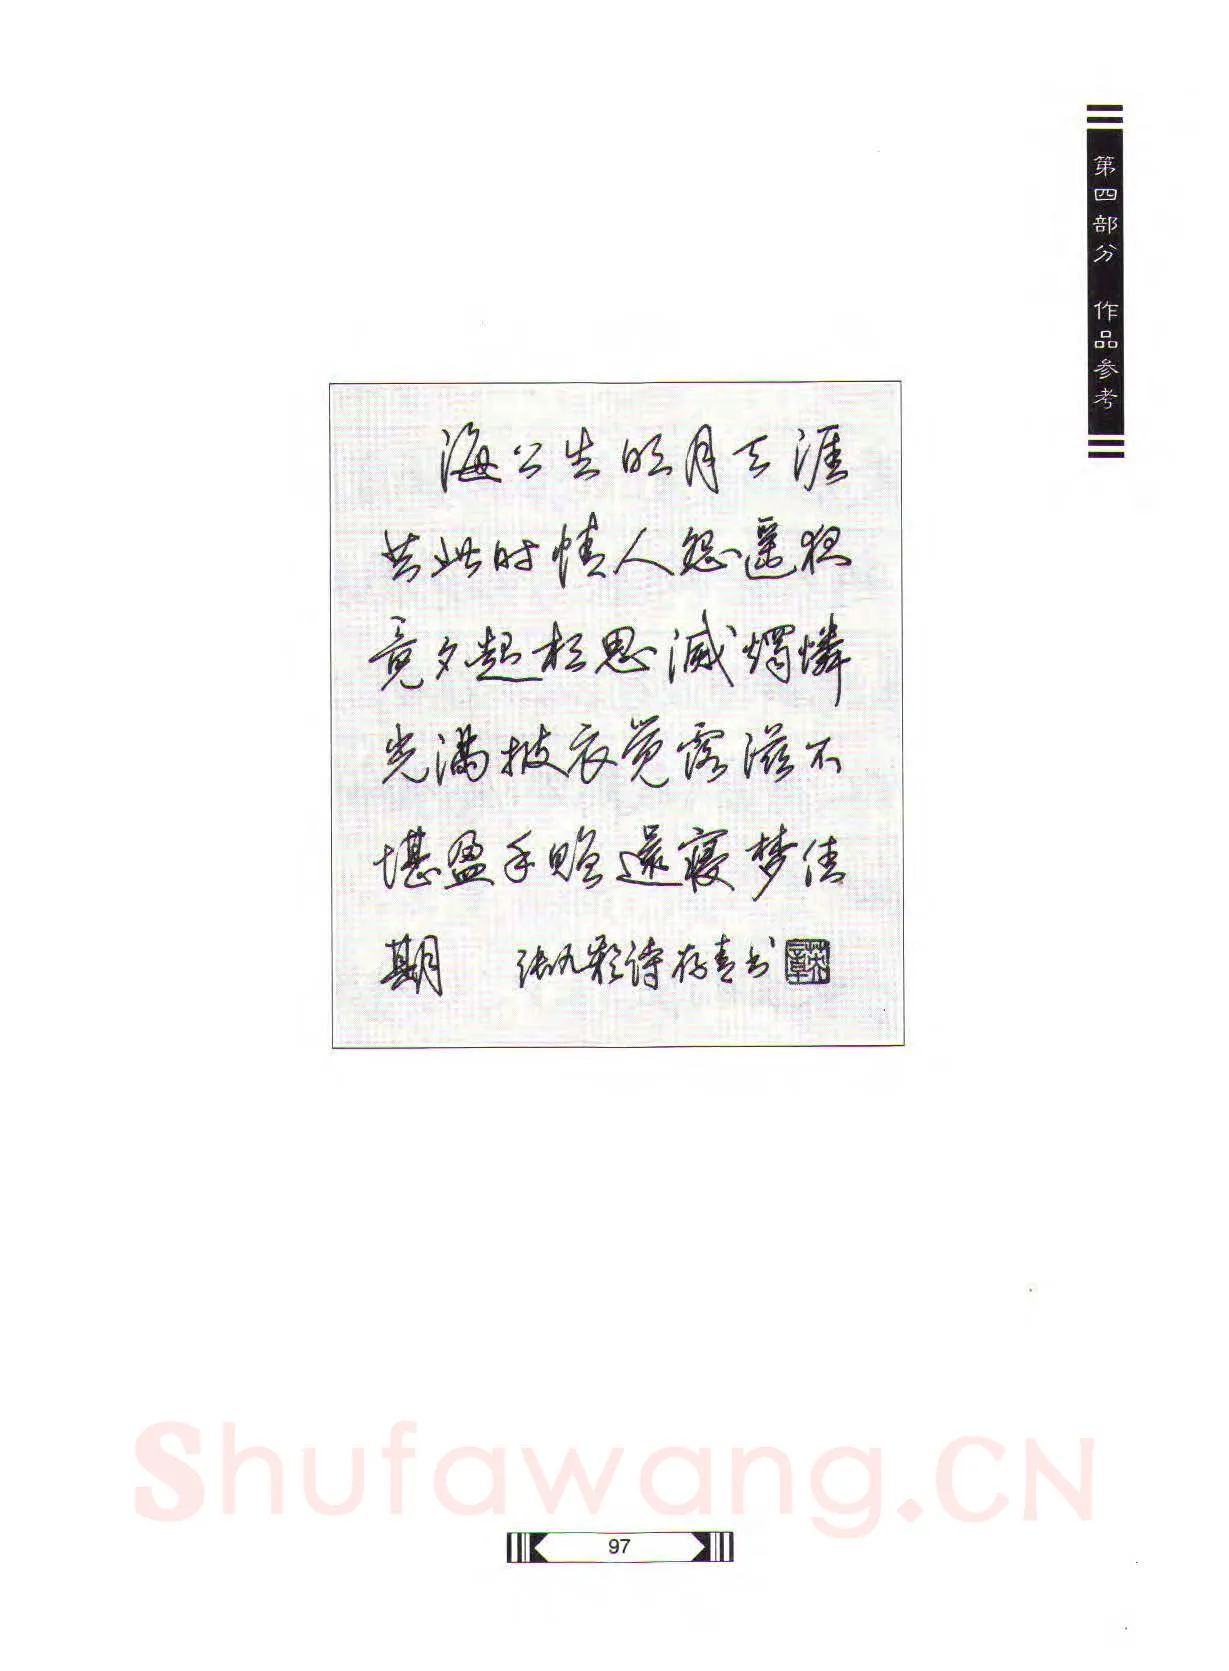 第四部分 作品参考
海上生明月天涯
共此时情人怨遥夜
竟夕起相思滅燭憐
光满披衣觉露滋不
堪盈手赠還寝梦佳
期 张九龄诗 存青书
Shufawang.CN
97